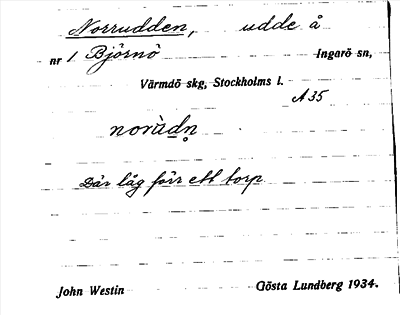 Norrudden, udde å
nr 1 Björnö Ingarö sn,
Värmdö skg, Stockholms l.
A 35
norùdn̥
Där låg förr ett torp
John Westin Gösta Lundberg 1934.